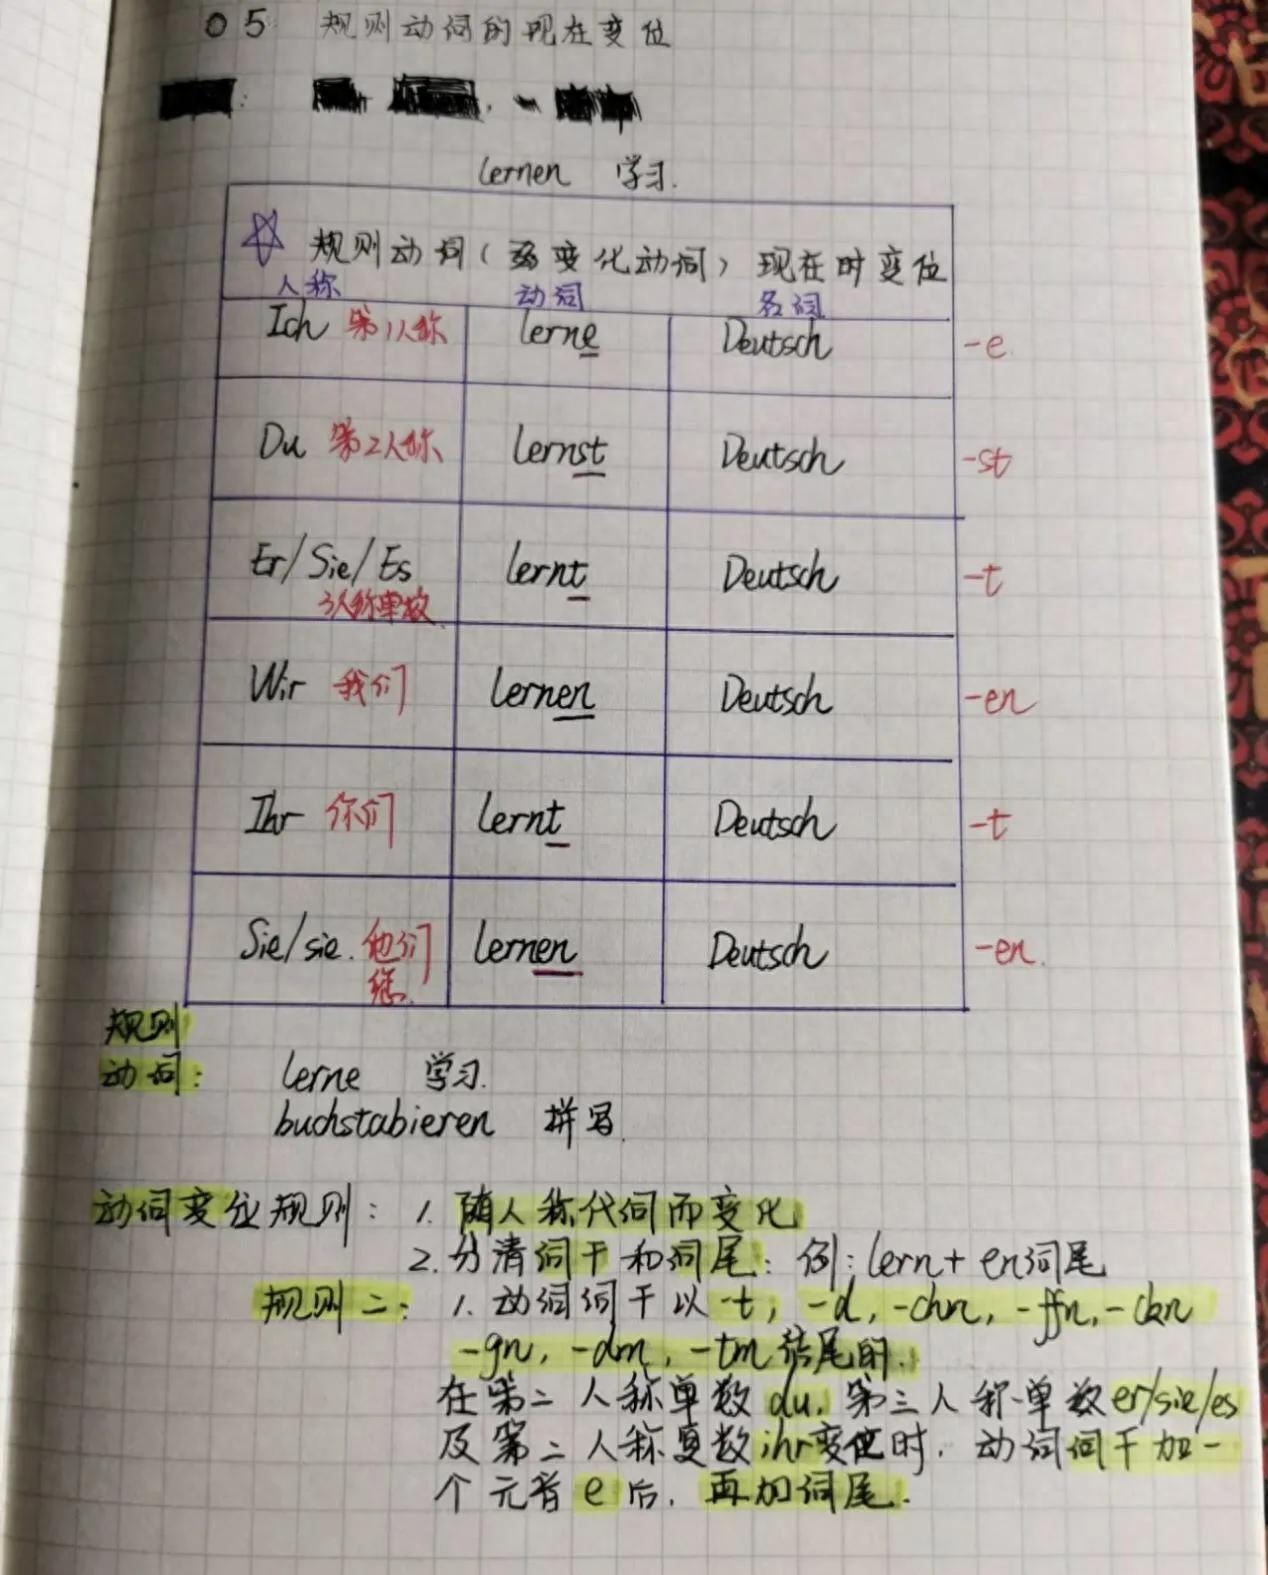 05 规则动词的现在变位
lernen 学习.
规则动词(弱变化动词)现在时变位
人称 动词 名词
Ich 第1人称 lerne Deutsch -e
Du 第2人称 lernst Deutsch -st
Er/Sie/Es lernt Deutsch -t
3人称单数
Wir 我们 lernen Deutsch -en
Ihr 你们 lernt Deutsch -t
Sie/sie. 他们 lernen Deutsch -en.
您.
规则
动词: lerne 学习.
buchstabieren 拼写.
动词变位规则: 1. 随人称代词而变化
2. 分清词干和词尾: 例: lern+en词尾
规则二: 1. 动词词干以 -t, -d, -chn, -ffn, -ckn
-gn, -dm, -tm 结尾的.
在第二人称单数 du, 第三人称单数 er/sie/es
及第二人称复数 ihr变位时, 动词词干加一
个元音 e 后, 再加词尾.